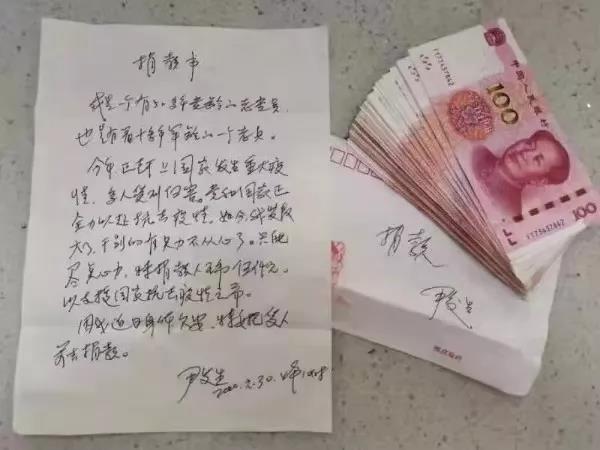 捐款书
我是一个有50多年党龄的老党员,
也是有着十多年军龄的一个老兵。
今年正赶上国家发生重大疫
情,多人受到伤害。党和国家正
全力以赴抗击疫情。如今我岁数
大了,干别的有点力不从心了。只能
尽点心力,特捐款人民币伍仟元。
以支援国家抗击疫情之
因我近日身体欠安,特委托家人
前去捐款。
尹发生
捐款
尹发生
中国人民
100
100